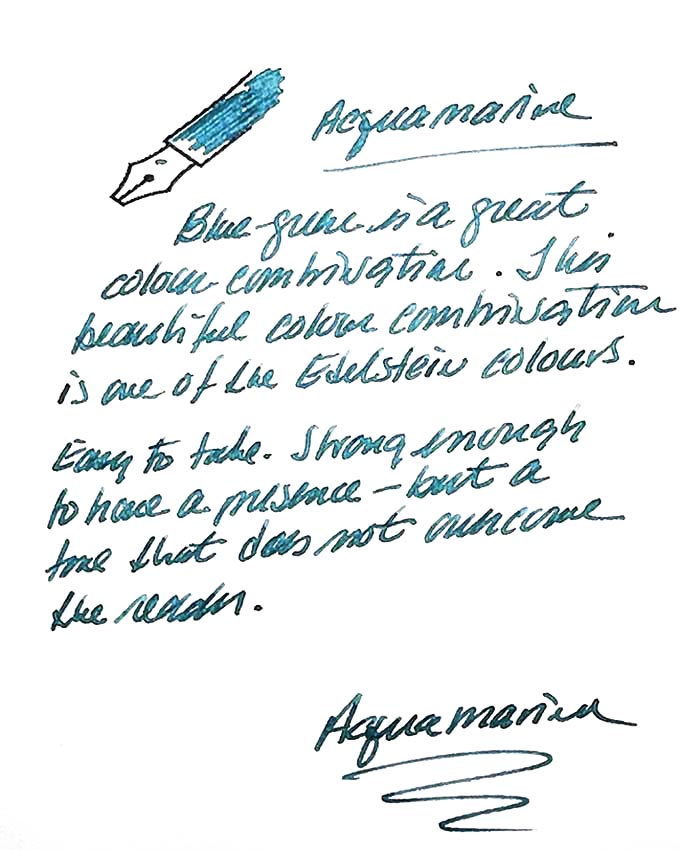 Acquamarine
Blue-green is a great
colour combination. This
beautiful colour combination
is one of the Edelstein colours.
Easy to take. Strong enough
to have a presence – but a
tone that does not overcome
the reader.
Acquamarine